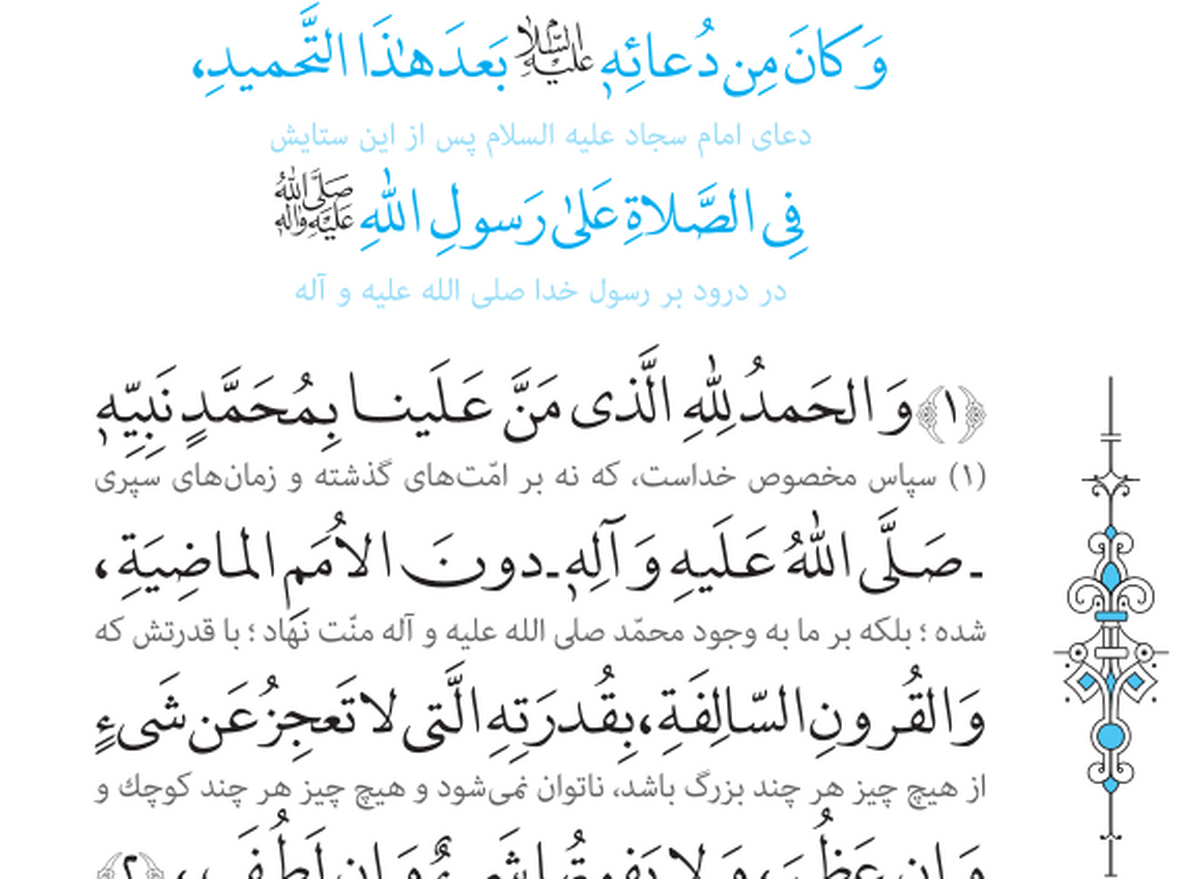 وَ كانَ مِن دُعائِهِ عليه السلام بَعدَ هٰذَا التَّحميدِ،
دعای امام سجاد علیه السلام پس از این ستایش
فِی الصَّلاةِ عَلىٰ رَسولِ اللهِ صَلَّى اللهُ عَلَيْهِ وَآلِهِ
در درود بر رسول خدا صلی الله علیه و آله
﴿۱﴾ وَ الحَمدُ لِلّٰهِ الَّذی مَنَّ عَلَینا بِمُحَمَّدٍ نَبِیِّهِ
(۱) سپاس مخصوص خداست، که نه بر امّت‌های گذشته و زمان‌های سپری
ـ صَلَّى اللهُ عَلَیهِ وَ آلِهِ ـ دونَ الاُمَمِ الماضِیَةِ،
شده ؛ بلکه بر ما به وجود محمّد صلی الله علیه و آله منّت نهاد ؛ با قدرتش که
وَ القُرونِ السّالِفَةِ، بِقُدرَتِهِ الَّتی لا تَعجِزُ عَن شَیءٍ
از هیچ چیز هر چند بزرگ باشد، ناتوان نمی‌شود و هیچ چیز هر چند کوچك و
وَ إن عَظُمَ، وَ لا یَفوتُها شَیءٌ وَ إن لَطُفَ، ﴿۲﴾